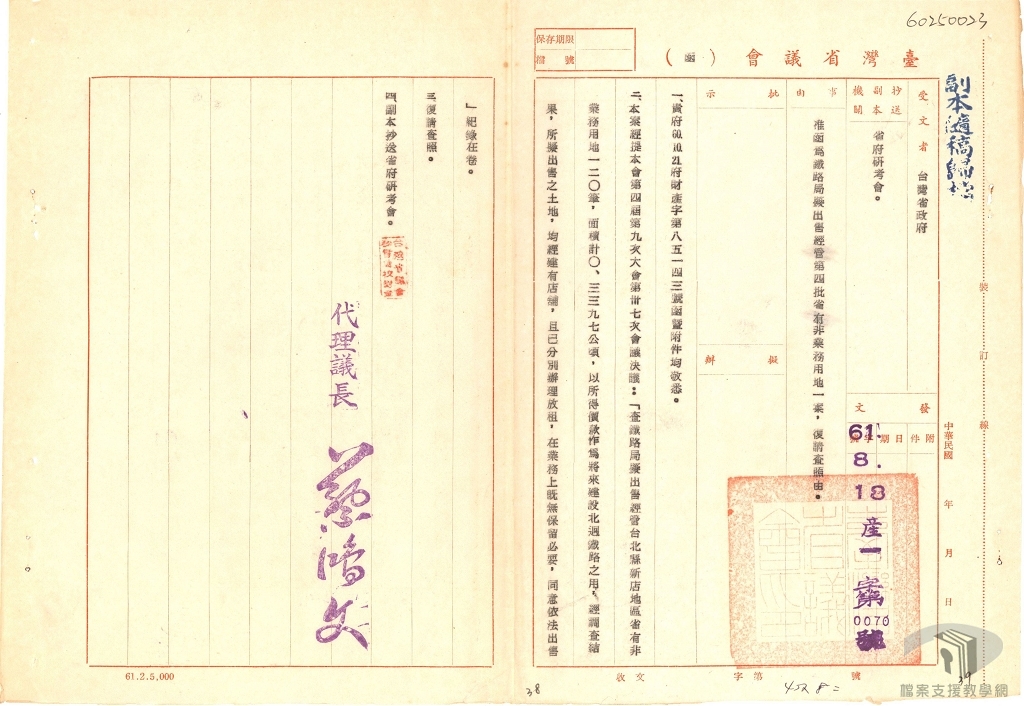 60250023
保存期限
檔號
臺灣省議會（函）
副本隨稿歸檔
受文者
台灣省政府
抄送副本機關
省府研考會。
事由
准函為鐵路局擬出售經管第四批省有非業務用地一案，復請查照由。
批示
擬辦
發文
附件
日期
字號
61. 8. 18
產一字第
0070
號
中華民國 年 月 日
裝訂線
一、貴府60.10.21府財產字第八五一四三號函暨附件均敬悉。
二、本案經提本會第四屆第九次大會第卅七次會議決議：「查鐵路局擬出售經管台北縣新店地區省有非
業務用地一二〇筆，面積計〇、三三九七公頃，以所得價款作為將來建設北迴鐵路之用，經調查結
果，所擬出售之土地，均經建有店舖，且已分別辦理放租，在業務上既無保留必要，同意依法出售
」紀錄在卷。
三、復請查照。
四、副本抄送省府研考會。
代理議長 蔡鴻文
收文 字第 號
38
39
61.2.5,000
檔案支援教學網